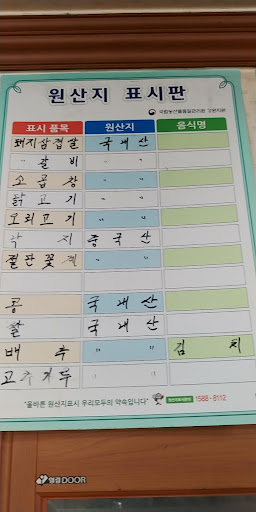 원산지 표시판
국립농산물품질관리원 강원지원
표시 품목 원산지 음식명
돼지삼겹살 국내산
" 갈비 " "
소곱창 " "
닭고기 " "
오리고기 " "
낙지 중국산
" "
콩 국내산
쌀 국내산
배추 " " 김치
고추가루 " "
"올바른 원산지표시 우리모두의 약속입니다" 1588-8112
영림DOOR